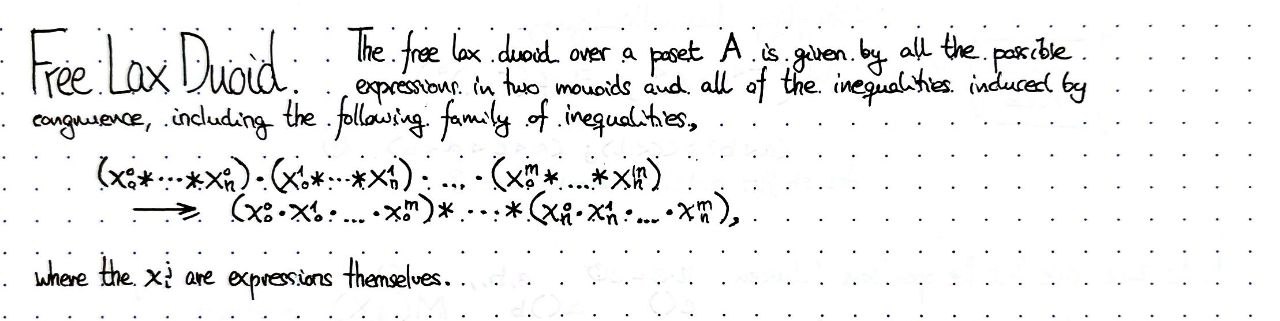 Free Lax Duoid. The free lax duoid over a poset A is given by all the possible
expressions in two monoids and all of the inequalities induced by
congruence, including the following family of inequalities,
(X₀⁰*⋯*Xₙ⁰)·(X₀¹*⋯*Xₙ¹)·...·(X₀ᵐ*...*Xₙᵐ)
⟶ (X₀⁰·X₀¹·...·X₀ᵐ)*⋯*(Xₙ⁰·Xₙ¹·...·Xₙᵐ),
where the Xᵢʲ are expressions themselves.